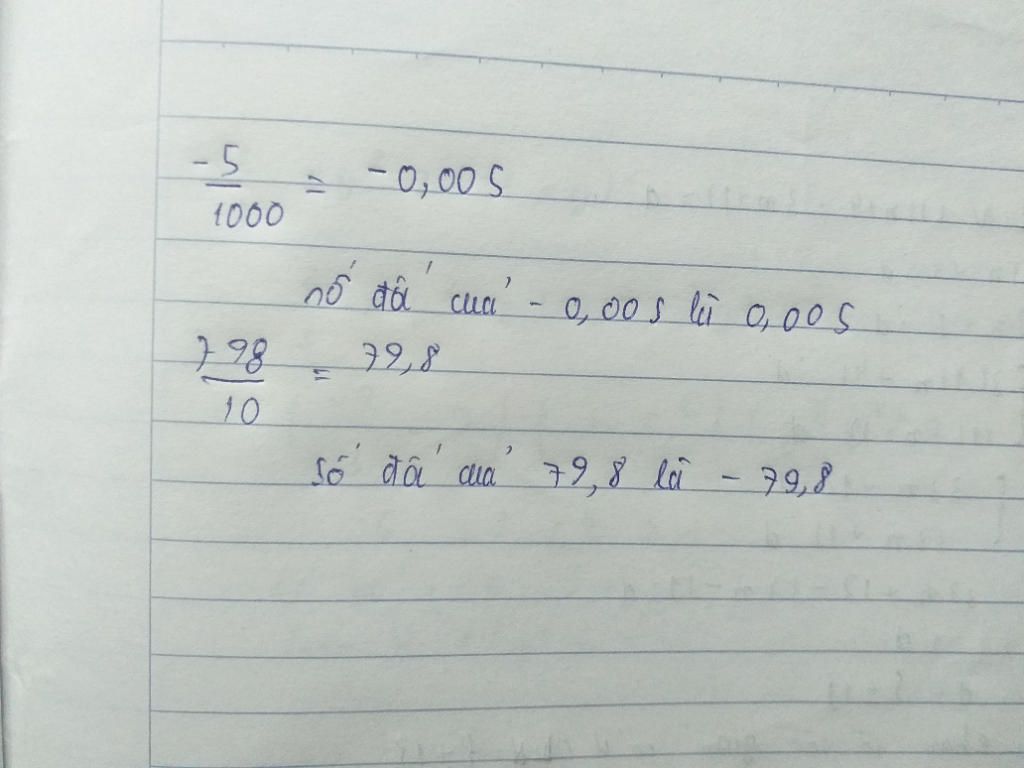 -5/1000 = -0,005
số đối của -0,005 là 0,005
798/10 = 79,8
số đối của 79,8 là -79,8